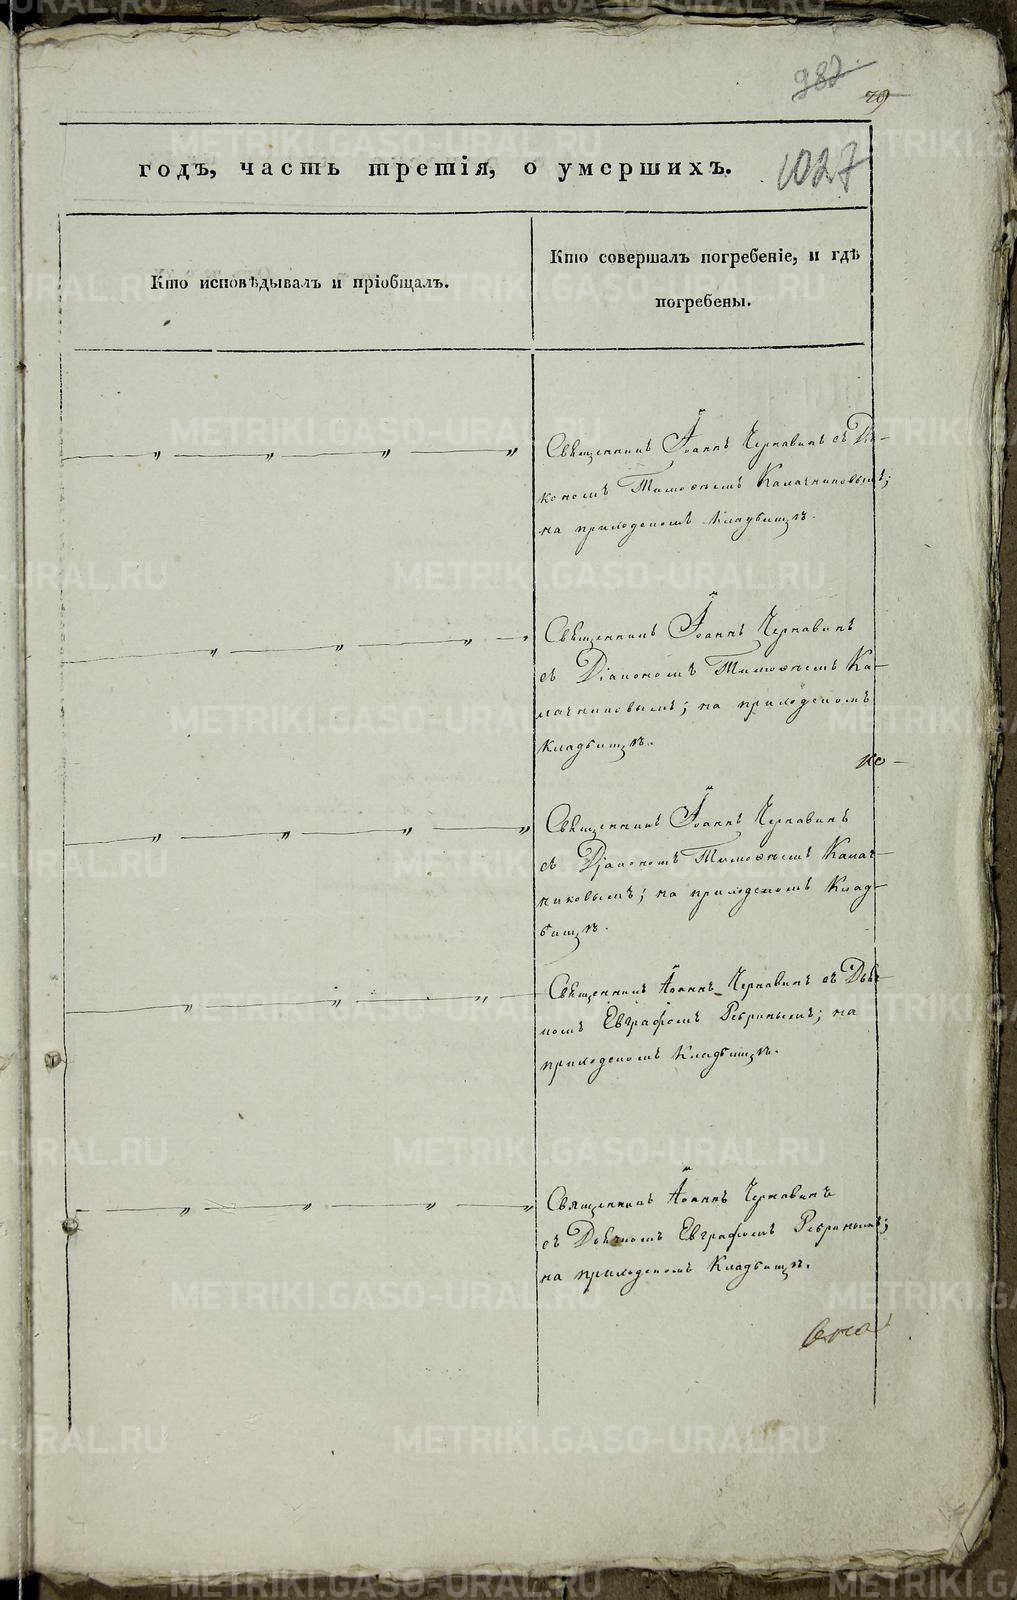 982
79
годъ, часть третія, о умершихъ.
1027
Кто исповѣдывалъ и пріобщалъ.
Кто совершалъ погребеніе, и гдѣ
погребены.
Священникъ Іоаннъ Чернавинъ съ Діа-
кономъ Тимоѳеемъ Калачниковымъ;
на приходскомъ кладбищѣ.
Священникъ Іоаннъ Чернавинъ
съ Діакономъ Тимоѳеемъ Ка-
лачниковымъ; на приходскомъ
кладбищѣ.
Священникъ Іоаннъ Чернавинъ
съ Діакономъ Тимоѳеемъ Калач-
никовымъ; на приходскомъ Клад-
бищѣ.
Священникъ Іоаннъ Чернавинъ съ Дьяч-
комъ Евграфомъ Ребринымъ; на
приходскомъ Кладбищѣ.
Священникъ Іоаннъ Чернавинъ
съ Дьячкомъ Евграфомъ Ребринымъ;
на приходскомъ Кладбищѣ.
METRIKI.GASO-URAL.RU